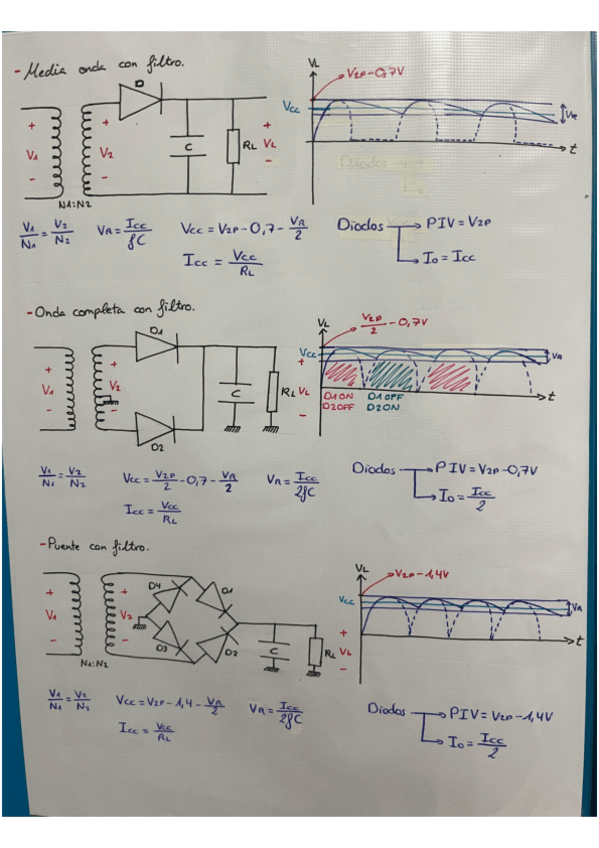 - Media onda con filtro.
D
+ V1 -
+ V2 -
N1:N2
C
RL
+ VL -
VL
V2P-0,7V
VCC
VR
t
V1/N1 = V2/N2
VR = ICC/fC
VCC = V2P - 0,7 - VR/2
ICC = VCC/RL
Diodos → PIV = V2P
→ IO = ICC
- Onda completa con filtro.
D1
+ V1 -
+ V2 -
D2
C
RL
+ VL -
VL
V2P/2 - 0,7V
VCC
VR
t
D1 ON D1 OFF
D2 OFF D2 ON
V1/N1 = V2/N2
VCC = V2P/2 - 0,7 - VR/2
VR = ICC/2fC
ICC = VCC/RL
Diodos → PIV = V2P - 0,7V
→ IO = ICC/2
- Puente con filtro.
D4
D1
+ V1 -
+ V2 -
D3
D2
N1:N2
C
RL
+ VL -
VL
V2P - 1,4V
VCC
VR
t
V1/N1 = V2/N2
VCC = V2P - 1,4 - VR/2
VR = ICC/2fC
ICC = VCC/RL
Diodos → PIV = V2P - 1,4V
→ IO = ICC/2